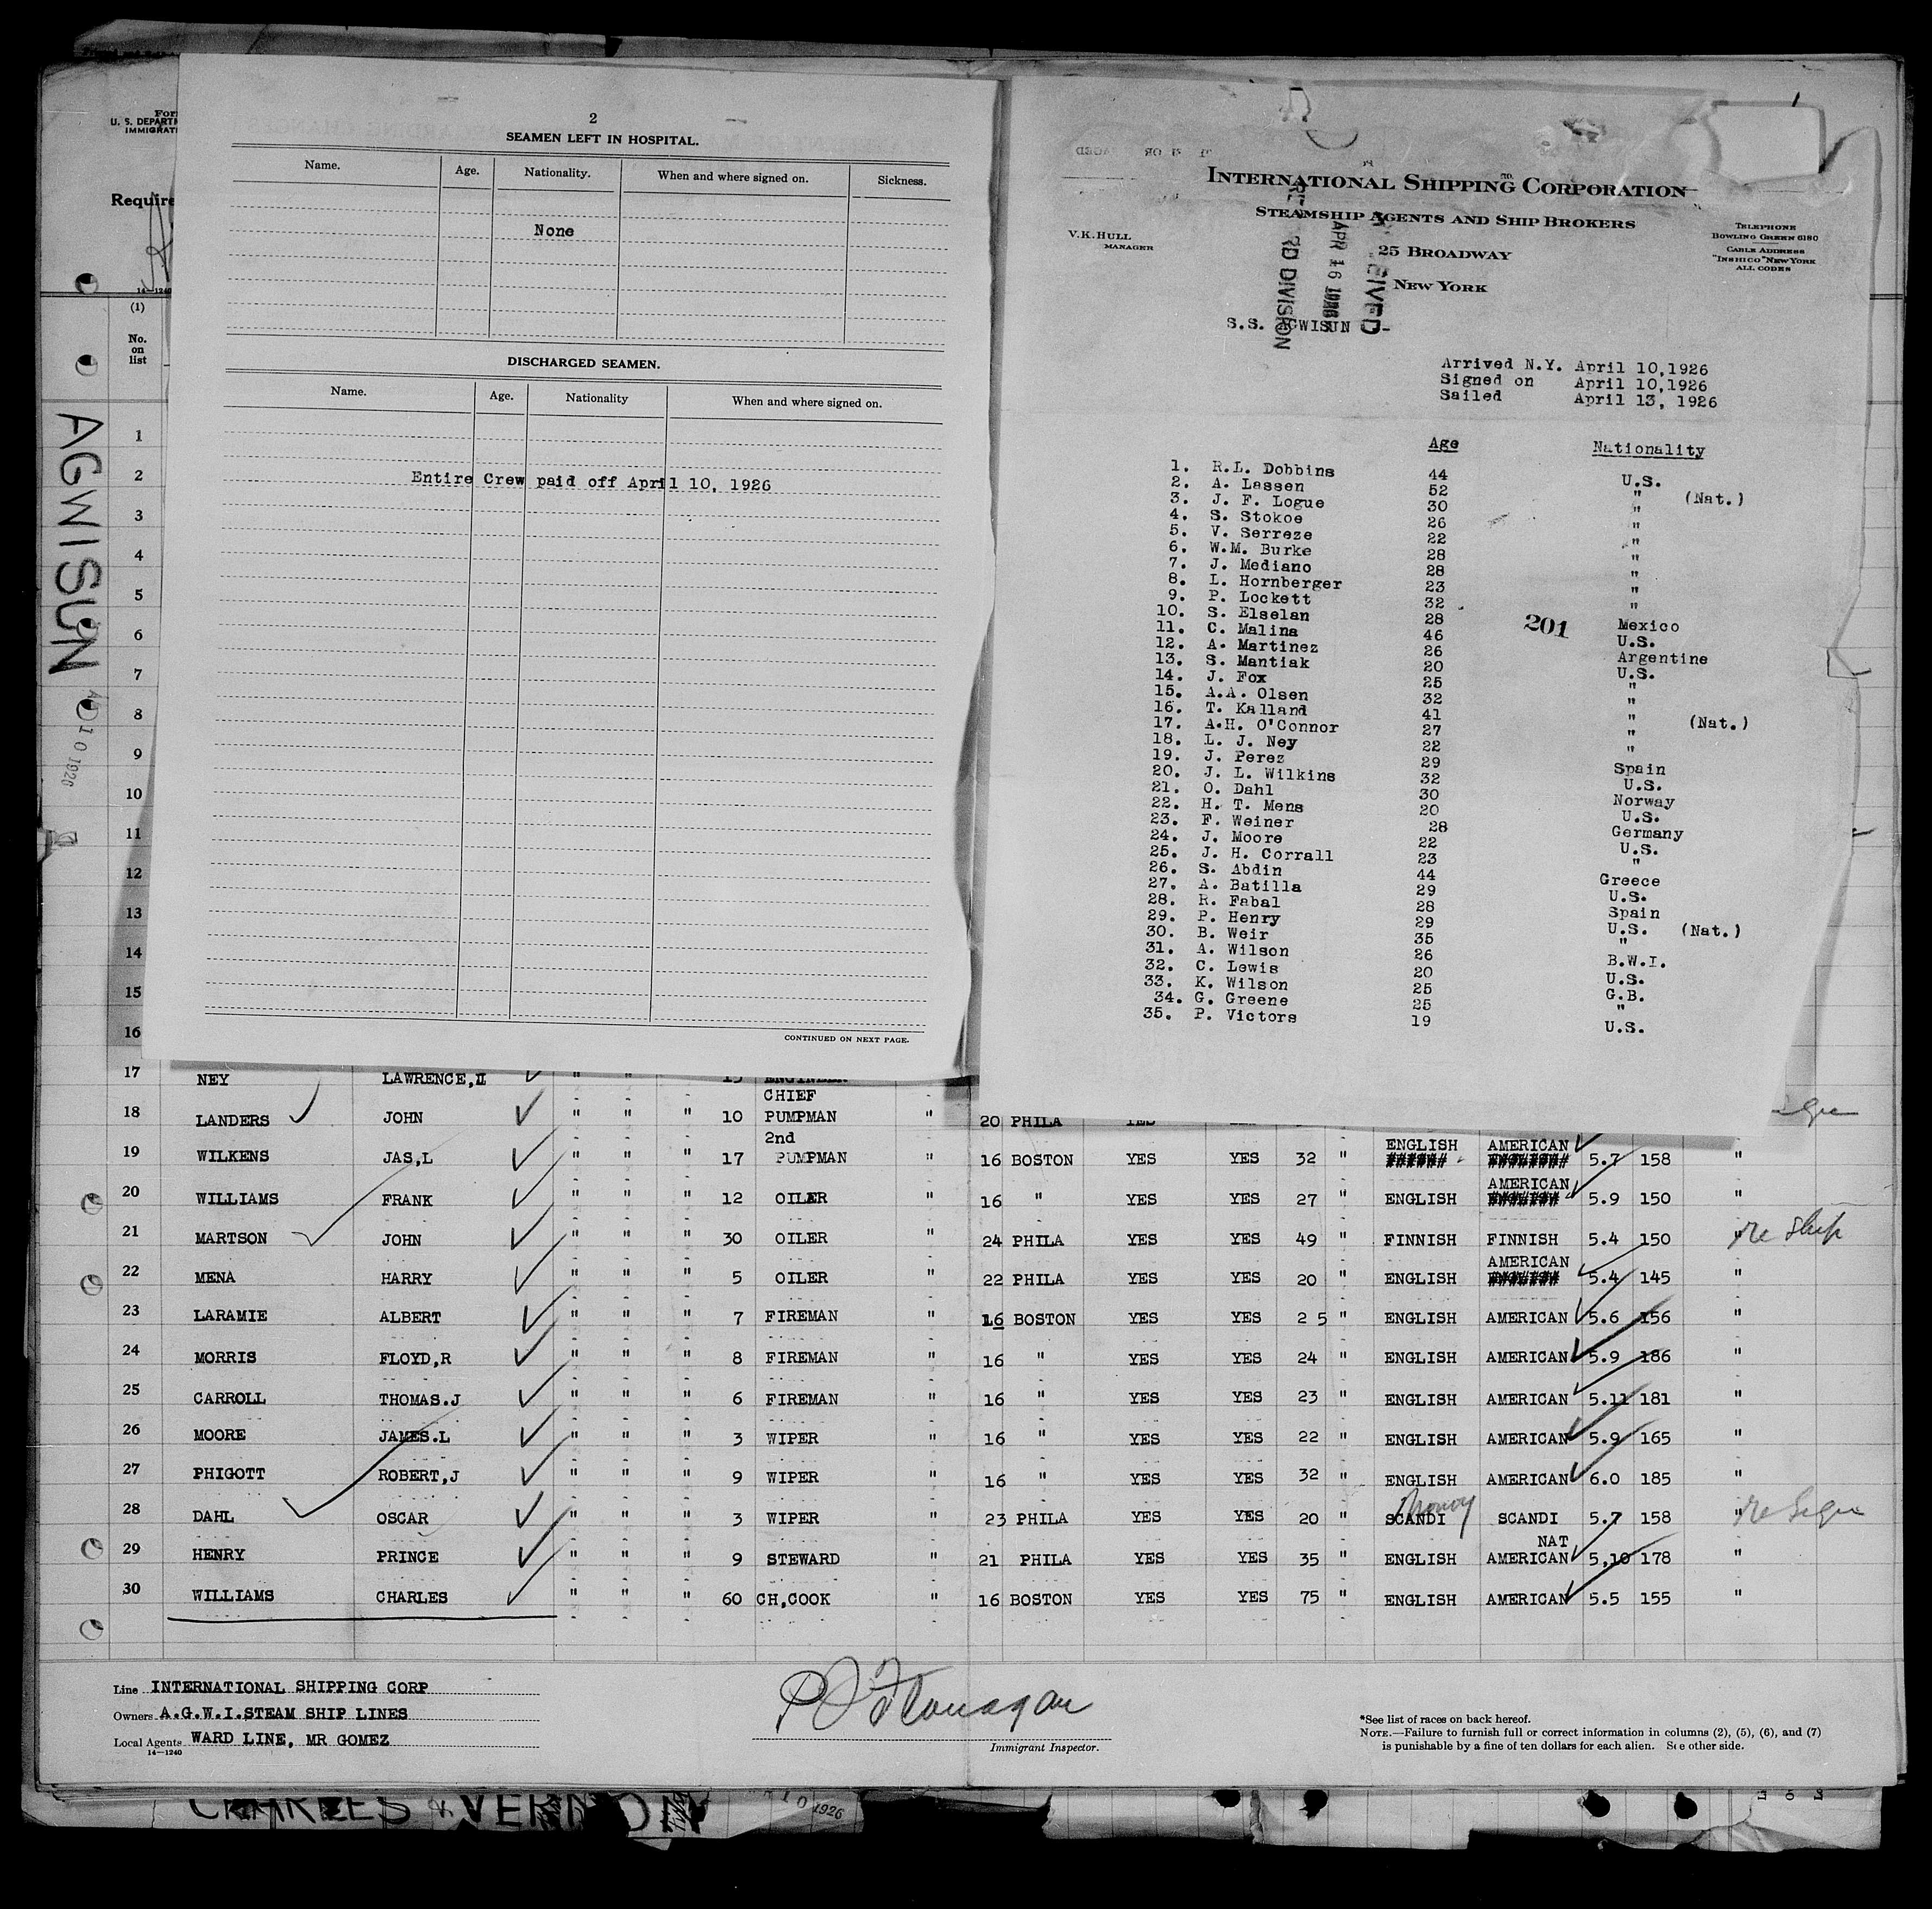 For
U. S. DEPARTM
IMMIGRATI
Require
14—1240
(1)
No.
on
list
AGWISUN
10 1926
1
2
3
4
5
6
7
8
9
10
11
12
13
14
15
16
2
SEAMEN LEFT IN HOSPITAL.
Name. Age. Nationality. When and where signed on. Sickness.
None
DISCHARGED SEAMEN.
Name. Age. Nationality When and where signed on.
Entire Crew paid off April 10, 1926
CONTINUED ON NEXT PAGE.
INTERNATIONAL SHIPPING CORPORATION
STEAMSHIP AGENTS AND SHIP BROKERS
25 BROADWAY
NEW YORK
V.K.HULL
MANAGER
TELEPHONE
BOWLING GREEN 6180
CABLE ADDRESS
"INSHICO" NEW YORK
ALL CODES
RD DIVISION
APR 16 1926
EIVED
S.S. GWISUN -
Arrived N.Y. April 10,1926
Signed on April 10,1926
Sailed April 13, 1926
Age Nationality
1. R.L. Dobbins 44 U.S.
2. A. Lassen 52 " (Nat.)
3. J. F. Logue 30 "
4. S. Stokoe 26 "
5. V. Serreze 22 "
6. W.M. Burke 28 "
7. J. Mediano 28 "
8. L. Hornberger 23 "
9. P. Lockett 32 "
10. S. Elselan 28 Mexico
11. C. Malina 46 U.S.
12. A. Martinez 26 Argentine
13. S. Mantiak 20 U.S.
14. J. Fox 25 "
15. A.A. Olsen 32 "
16. T. Kalland 41 " (Nat.)
17. A.H. O'Connor 27 "
18. L. J. Ney 22 "
19. J. Perez 29 Spain
20. J. L. Wilkins 32 U.S.
21. O. Dahl 30 Norway
22. H. T. Mens 20 U.S.
23. F. Weiner 28 Germany
24. J. Moore 22 U.S.
25. J. H. Corrall 23 "
26. S. Abdin 44 Greece
27. A. Batilla 29 U.S.
28. R. Fabal 28 Spain
29. P. Henry 29 U.S. (Nat.)
30. B. Weir 35 "
31. A. Wilson 26 B.W.I.
32. C. Lewis 20 U.S.
33. K. Wilson 25 G.B.
34. G. Greene 25 "
35. P. Victors 19 U.S.
201
17 NEY LAWRENCE,II " " 15 ENGINEER
18 LANDERS JOHN " " " 10 CHIEF PUMPMAN " 20 PHILA YES
19 WILKENS JAS,L " " " 17 2nd PUMPMAN " 16 BOSTON YES YES 32 " ENGLISH AMERICAN 5.7 158 "
20 WILLIAMS FRANK " " " 12 OILER " 16 " YES YES 27 " ENGLISH AMERICAN 5.9 150 "
21 MARTSON JOHN " " " 30 OILER " 24 PHILA YES YES 49 " FINNISH FINNISH 5.4 150 re ship
22 MENA HARRY " " " 5 OILER " 22 PHILA YES YES 20 " ENGLISH AMERICAN 5.4 145 "
23 LARAMIE ALBERT " " " 7 FIREMAN " 16 BOSTON YES YES 2 5 " ENGLISH AMERICAN 5.6 156 "
24 MORRIS FLOYD,R " " " 8 FIREMAN 16 " YES YES 24 " ENGLISH AMERICAN 5.9 186 "
25 CARROLL THOMAS.J " " " 6 FIREMAN " 16 " YES YES 23 " ENGLISH AMERICAN 5.11 181 "
26 MOORE JAMES.L " " " 3 WIPER " 16 " YES YES 22 " ENGLISH AMERICAN 5.9 165 "
27 PHIGOTT ROBERT,J " " " 9 WIPER " 16 " YES YES 32 " ENGLISH AMERICAN 6.0 185 "
28 DAHL OSCAR " " " 3 WIPER " 23 PHILA YES YES 20 " SCANDI SCANDI 5.7 158 "
29 HENRY PRINCE " " " 9 STEWARD " 21 PHILA YES YES 35 " ENGLISH NAT AMERICAN 5,10 178 "
30 WILLIAMS CHARLES " " " 60 CH,COOK " 16 BOSTON YES YES 75 " ENGLISH AMERICAN 5.5 155 "
Line INTERNATIONAL SHIPPING CORP
Owners A.G.W.I.STEAM SHIP LINES
Local Agents WARD LINE, MR GOMEZ
14—1240
P J Flanagan
Immigrant Inspector.
*See list of races on back hereof.
NOTE.—Failure to furnish full or correct information in columns (2), (5), (6), and (7)
is punishable by a fine of ten dollars for each alien. See other side.
CHARLES VERNON
10 1926